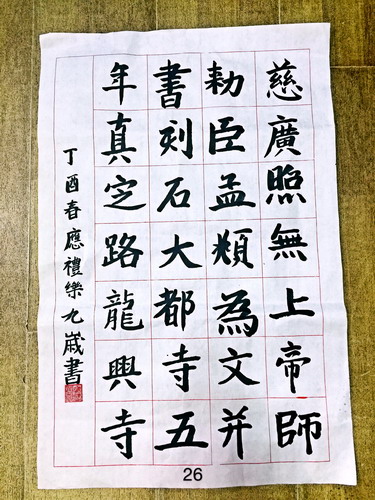 慈廣照無上帝師
勅臣孟頫為文并
書刻石大都寺五
年真定路龍興寺
丁酉春應禮樂九歲書
26